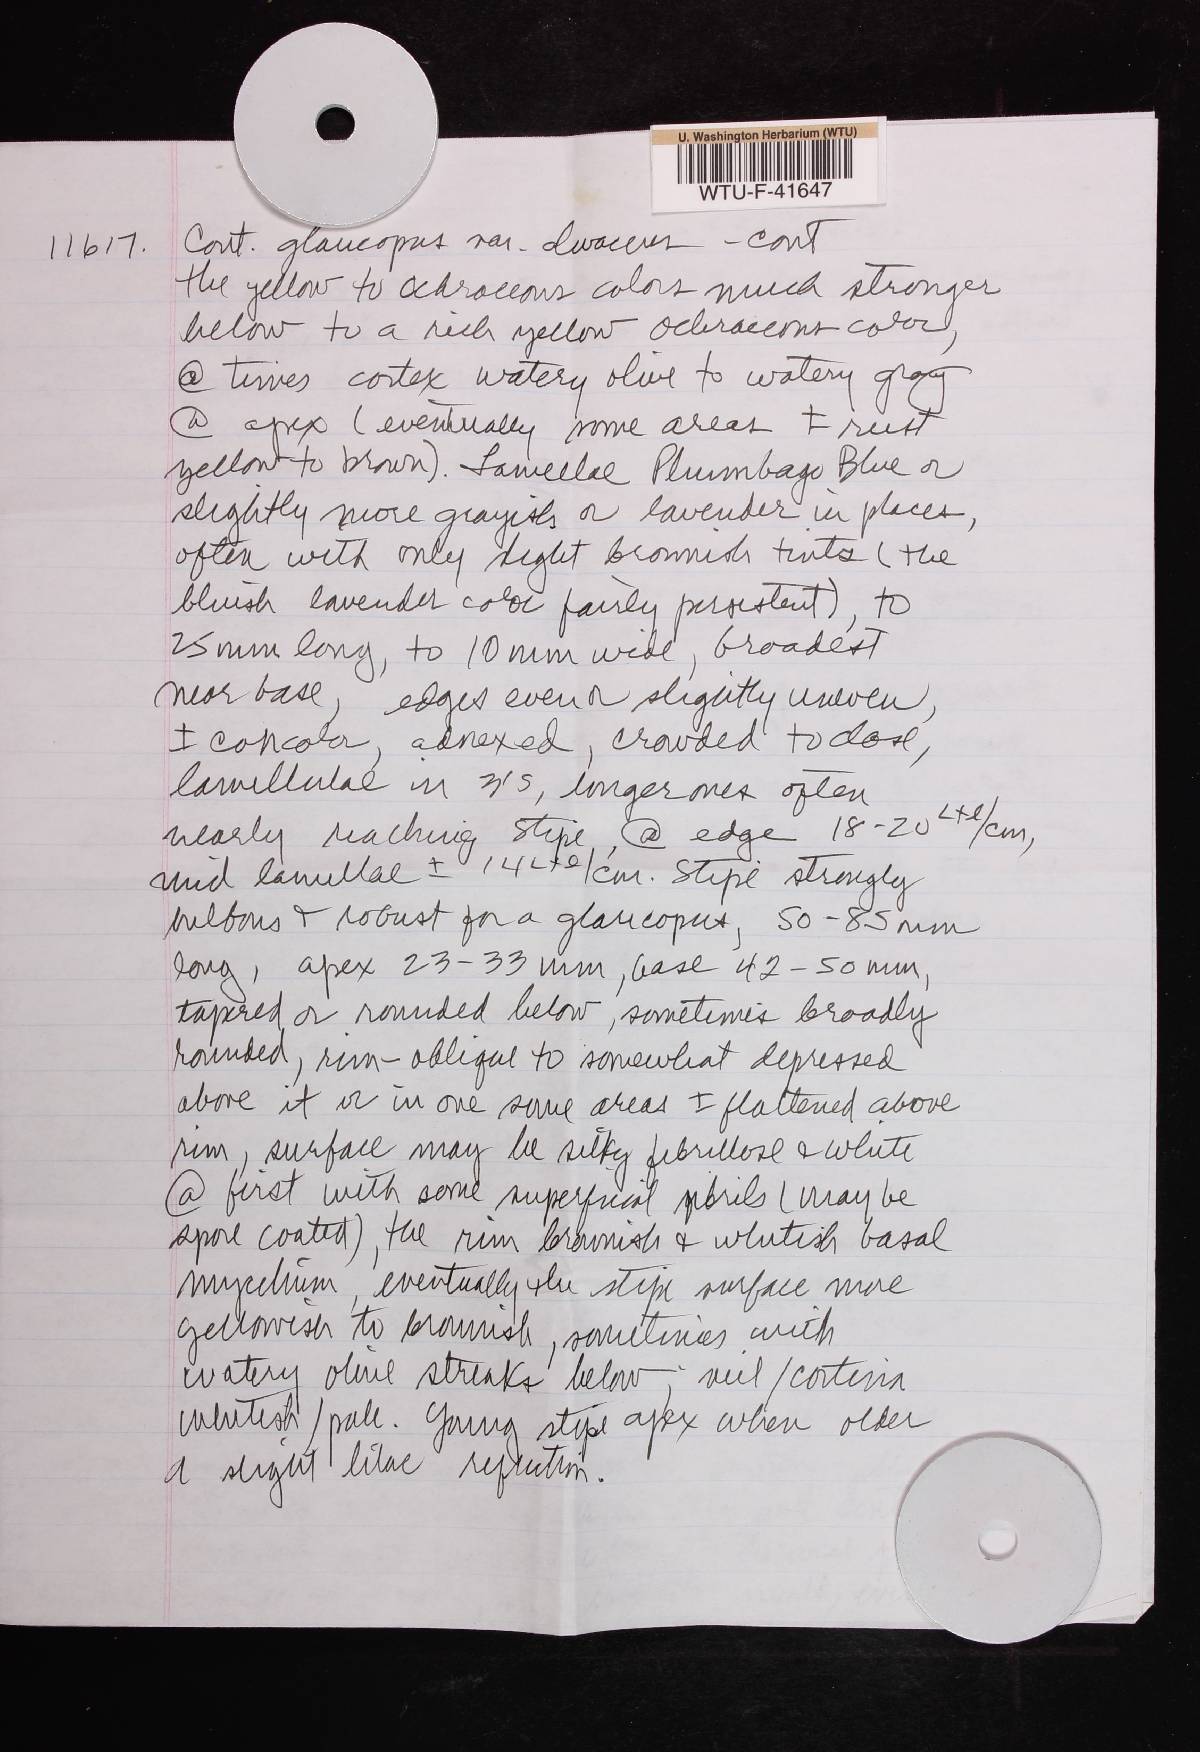 U. Washington Herbarium (WTU)
WTU-F-41647
11617. Cort. glaucopus var. olivaceus - cont
the yellow to ochraceous colors much stronger
below to a rich yellow ochraceous color,
@ times cortex watery olive to watery gray
@ apex (eventually some areas ± rust
yellow to brown). Lamellae Plumbago Blue or
slightly more grayish or lavender in places,
often with only slight brownish tints (the
bluish lavender color fairly persistent), to
25mm long, to 10mm wide, broadest
near base, edges even or slightly uneven,
± concolor, adnexed, crowded to close,
lamellulae in 3's, longer ones often
nearly reaching stipe, @ edge 18-20 L+l/cm,
mid lamellae ± 14 L+l/cm. Stipe strongly
bulbous & robust for a glaucopus, 50-85mm
long, apex 23-33mm, base 42-50mm,
tapered or rounded below, sometimes broadly
rounded, rim-oblique to somewhat depressed
above it or in one some areas ± flattened above
rim, surface may be silky fibrillose & white
@ first with some superficial fibrils (may be
spore coated), the rim brownish & whitish basal
mycelium, eventually the stipe surface more
yellowish to brownish, sometimes with
watery olive streaks below; veil/cortina
whitish/pale. Young stipe apex when older
a slight lilac reflection.